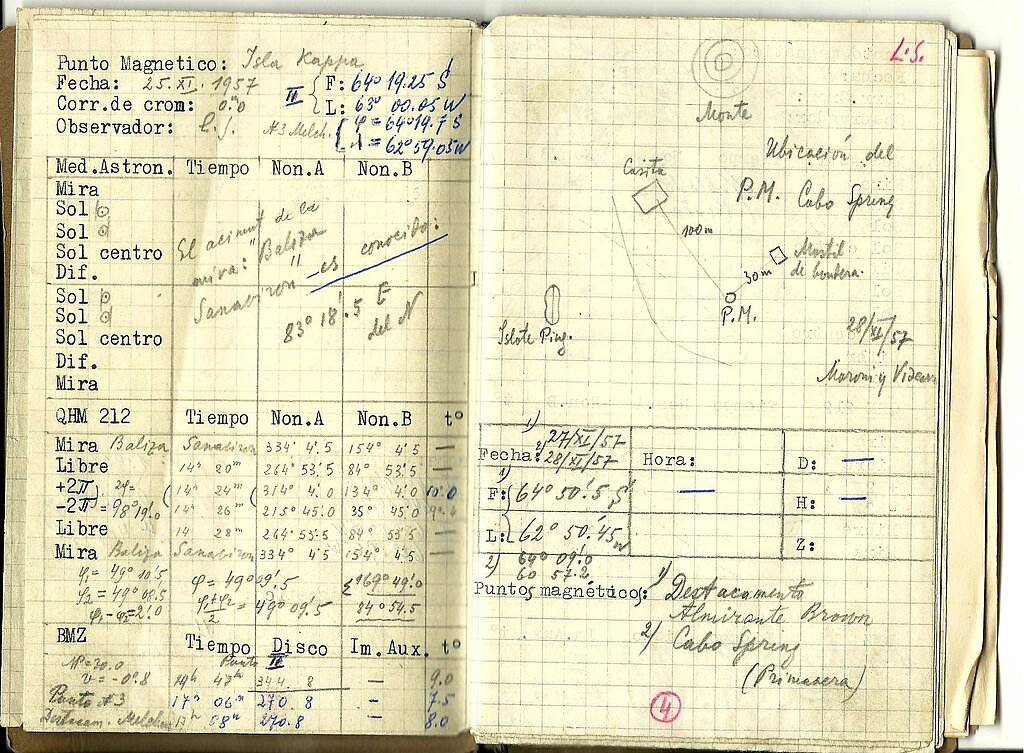 Punto Magnetico: Isla Kappa
Fecha: 25.XI.1957
II { F: 64° 19.25 S
Corr.de crom: 0.m0
L: 63° 00.05 W
Observador: L.S.
#3 Melch. { φ = 64°19.7 S
λ = 62°59.05 W
Med.Astron. Tiempo Non.A Non.B
Mira
Sol
Sol
Sol centro
Dif.
Sol
Sol
Sol centro
Dif.
Mira
El acimut de la
mira: "Baliza
Sanaviron" - es conocido:
83° 18'.5 E
del N
QHM 212 Tiempo Non.A Non.B t°
Mira Baliza Sanaviron 334° 4'.5 154° 4'.5 —
Libre 14h 20m 264° 53'.5 84° 53'.5 —
+2π 2φ= 14h 24m 314° 4'.0 134° 4'.0 10.0
-2π = 98°19'.0 14h 26m 215° 45'.0 35° 45'.0
Libre 14 28m 264° 55.5 84° 55.5 —
Mira Baliza Sanaviron 334° 4'.5 154° 4'.5 —
φ1 = 49° 10'.5
φ = 49°09'.5
Σ 169° 49'.0
φ2 = 49° 08.5
φ1+φ2/2 = 49° 09'.5
84° 54.5
φ1-φ2=2'.0
BMZ Tiempo Disco Im.Aux. t°
Punto II
N°=20.0
v = -0°.8
47m 344 8 — 9.0
Punto #3 17h 06m 270.8 — 7.5
Destacam. Melchior 17h 08m 270.8 — 8.0
L.S.
Monte
Ubicación del
P.M. Cabo Spring
Casita
100m
Mástil
de bandera.
30m
P.M.
Islote Ping.
28/XI/57
Moroni y Videara
1) 27/XI/57
Fecha: 2) 28/XI/57
Hora: —
D: —
1)
F: 64° 50'.5 S
H: —
L: 62° 50'.45 W
Z:
2) 64° 09'.0
60 57.2
Puntos magnético: 1) Destacamento
Almirante Brown
2) Cabo Spring
(Primavera)
4